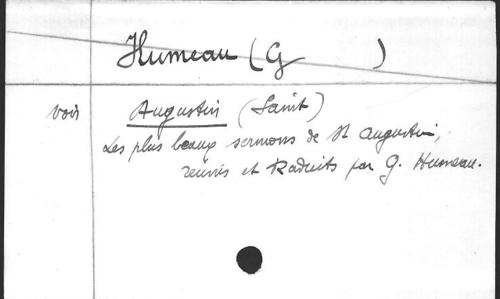 Humeau (G )
voir Augustin (Saint)
Les plus beaux sermons de St Augustin,
réunis et traduits par G. Humeau.